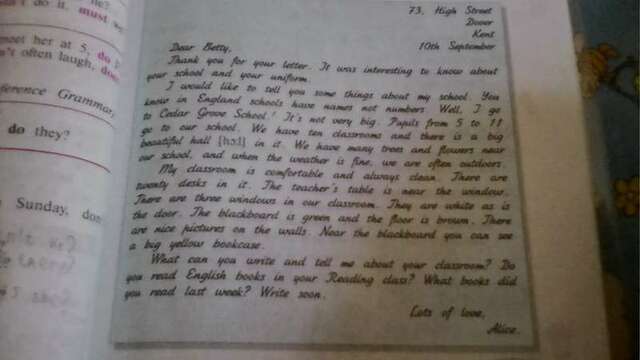 n't do it, must
meet her at 5, do
n't often laugh,
ference Grammar,
do they?
Sunday, don
73, High Street
Dover
Kent
10th September
Dear Betty,
Thank you for your letter. It was interesting to know about
your school and your uniform.
I would like to tell you some things about my school. You
know in England schools have names not numbers. Well, I go
to Cedar Grove School.¹ It's not very big. Pupils from 5 to 11
go to our school. We have ten classrooms and there is a big
beautiful hall [hɔ:l] in it. We have many trees and flowers near
our school, and when the weather is fine, we are often outdoors.
My classroom is comfortable and always clean. There are
twenty desks in it. The teacher's table is near the window.
There are three windows in our classroom. They are white as is
the door. The blackboard is green and the floor is brown. There
are nice pictures on the walls. Near the blackboard you can see
a big yellow bookcase.
What can you write and tell me about your classroom? Do
you read English books in your Reading class? What books did
you read last week? Write soon.
Lots of love,
Alice.